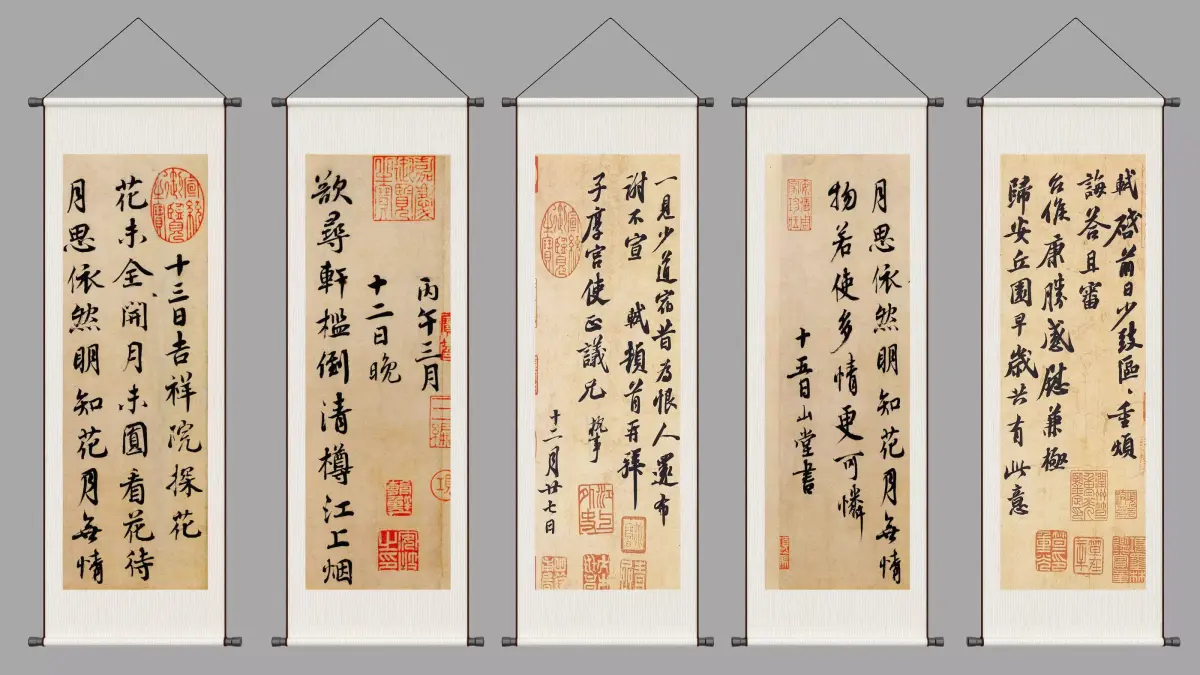 軾啓前日少致區、重煩
誨答且審
台候康勝感慰兼極
歸安丘園早歲共有此意
月思依然明知花月無情
物若使多情更可憐
十五日山堂書
一見少道宿昔為恨人還布
謝不宣 軾頓首再拜
子厚宮使正議兄執事
十二月廿七日
丙午三月
十二日晚
欲尋軒檻倒清樽江上烟
十三日吉祥院探花
花未全開月未圓看花待
月思依然明知花月無情